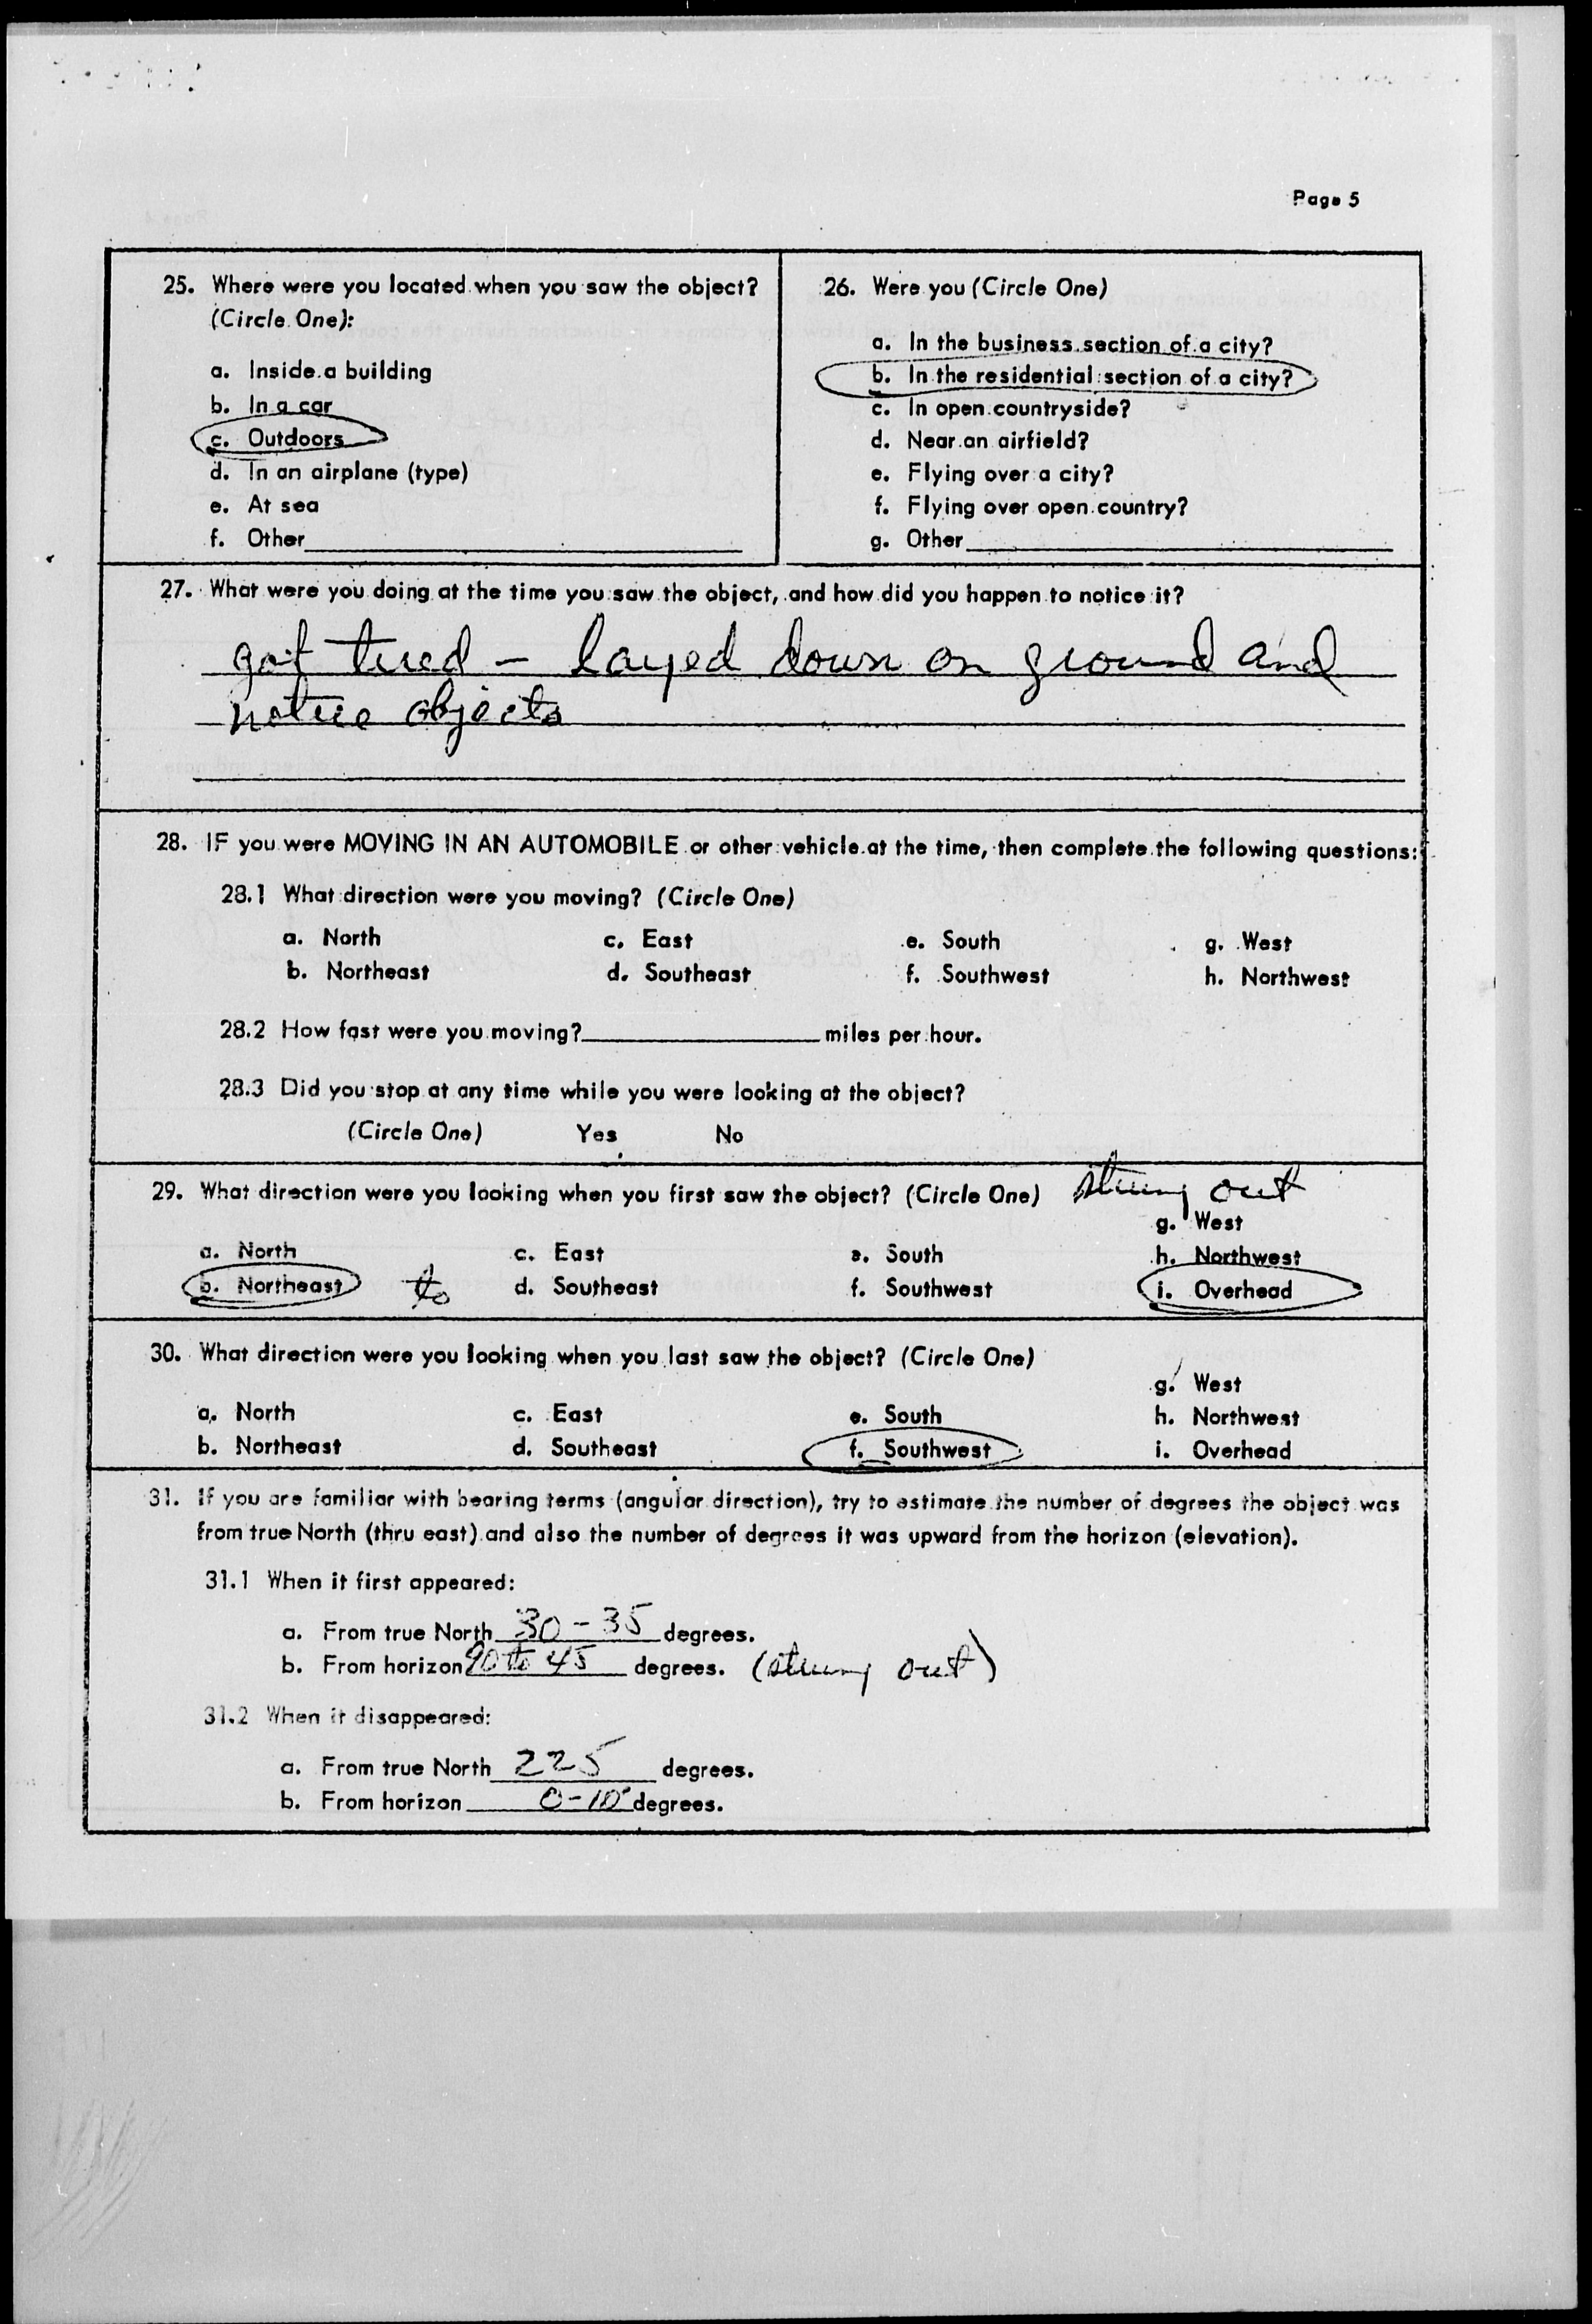 Page 5
25. Where were you located when you saw the object?
(Circle One):
a. Inside a building
b. In a car
c. Outdoors
d. In an airplane (type)
e. At sea
f. Other
26. Were you (Circle One)
a. In the business section of a city?
b. In the residential section of a city?
c. In open countryside?
d. Near an airfield?
e. Flying over a city?
f. Flying over open country?
g. Other
27. What were you doing at the time you saw the object, and how did you happen to notice it?
got tired - layed down on ground and
notice objects
28. IF you were MOVING IN AN AUTOMOBILE or other vehicle at the time, then complete the following questions:
28.1 What direction were you moving? (Circle One)
a. North c. East e. South g. West
b. Northeast d. Southeast f. Southwest h. Northwest
28.2 How fast were you moving? miles per hour.
28.3 Did you stop at any time while you were looking at the object?
(Circle One) Yes No
29. What direction were you looking when you first saw the object? (Circle One) strung out
g. West
a. North c. East e. South h. Northwest
b. Northeast to d. Southeast f. Southwest i. Overhead
30. What direction were you looking when you last saw the object? (Circle One)
g. West
a. North c. East e. South h. Northwest
b. Northeast d. Southeast f. Southwest i. Overhead
31. If you are familiar with bearing terms (angular direction), try to estimate the number of degrees the object was
from true North (thru east) and also the number of degrees it was upward from the horizon (elevation).
31.1 When it first appeared:
a. From true North 30-35 degrees.
b. From horizon 90 to 45 degrees. (strung out)
31.2 When it disappeared:
a. From true North 225 degrees.
b. From horizon 0-10° degrees.